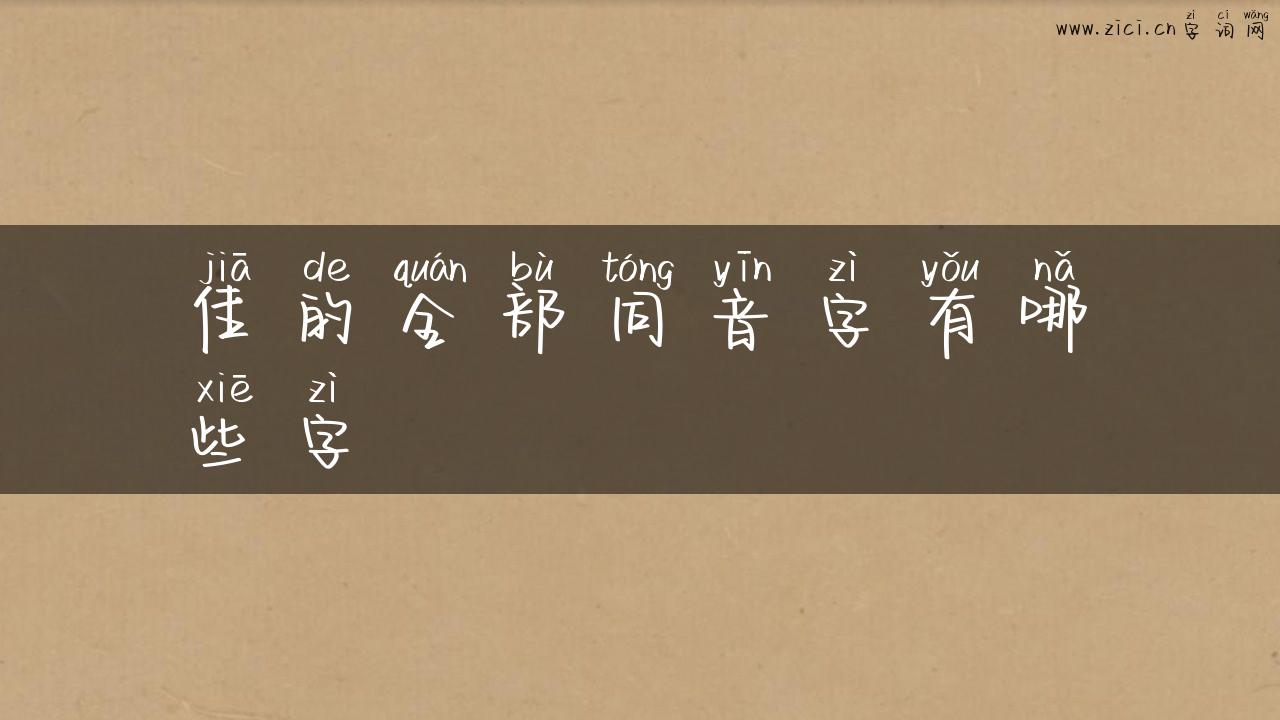 zì cí wǎng
www.zici.cn字词网
jiā de quán bù tóng yīn zì yǒu nǎ
佳的全部同音字有哪
xiē zì
些字